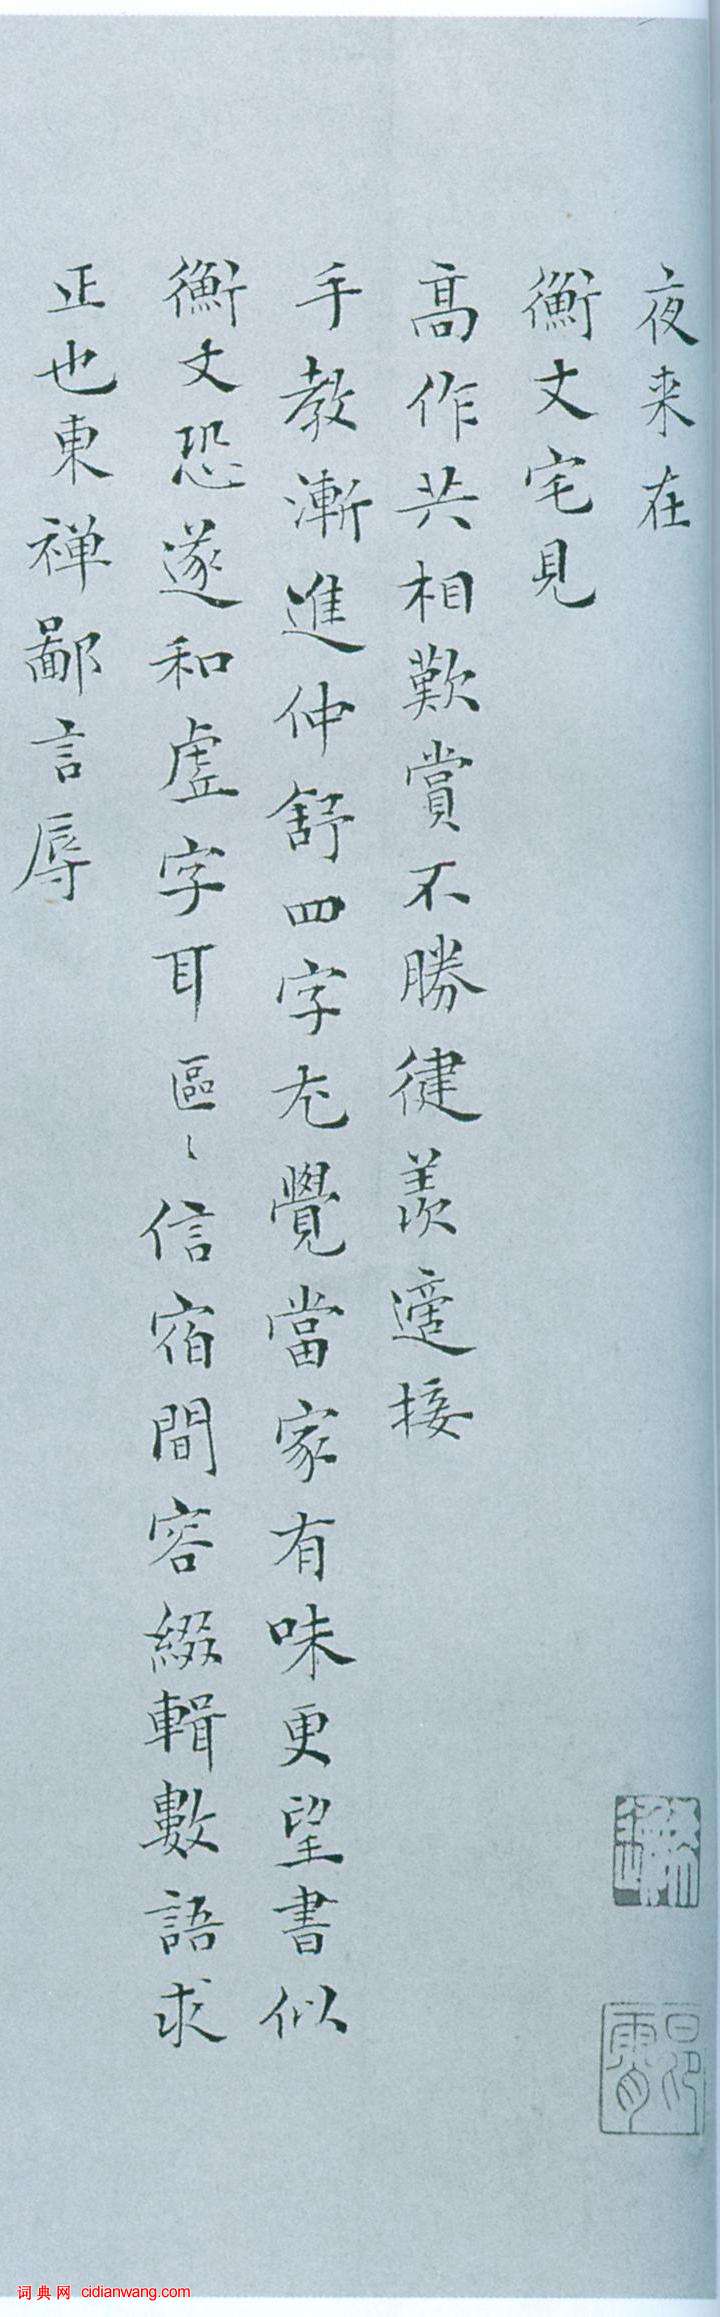 夜来在
衡丈宅見
高作共相歎賞不勝健羨適接
手教漸進仲舒四字尤覺當家有味更望書似
衡丈恐遂和虛字耳區〻信宿間容綴輯數語求
正也東禅鄙言辱
词典网 cidianwang.com